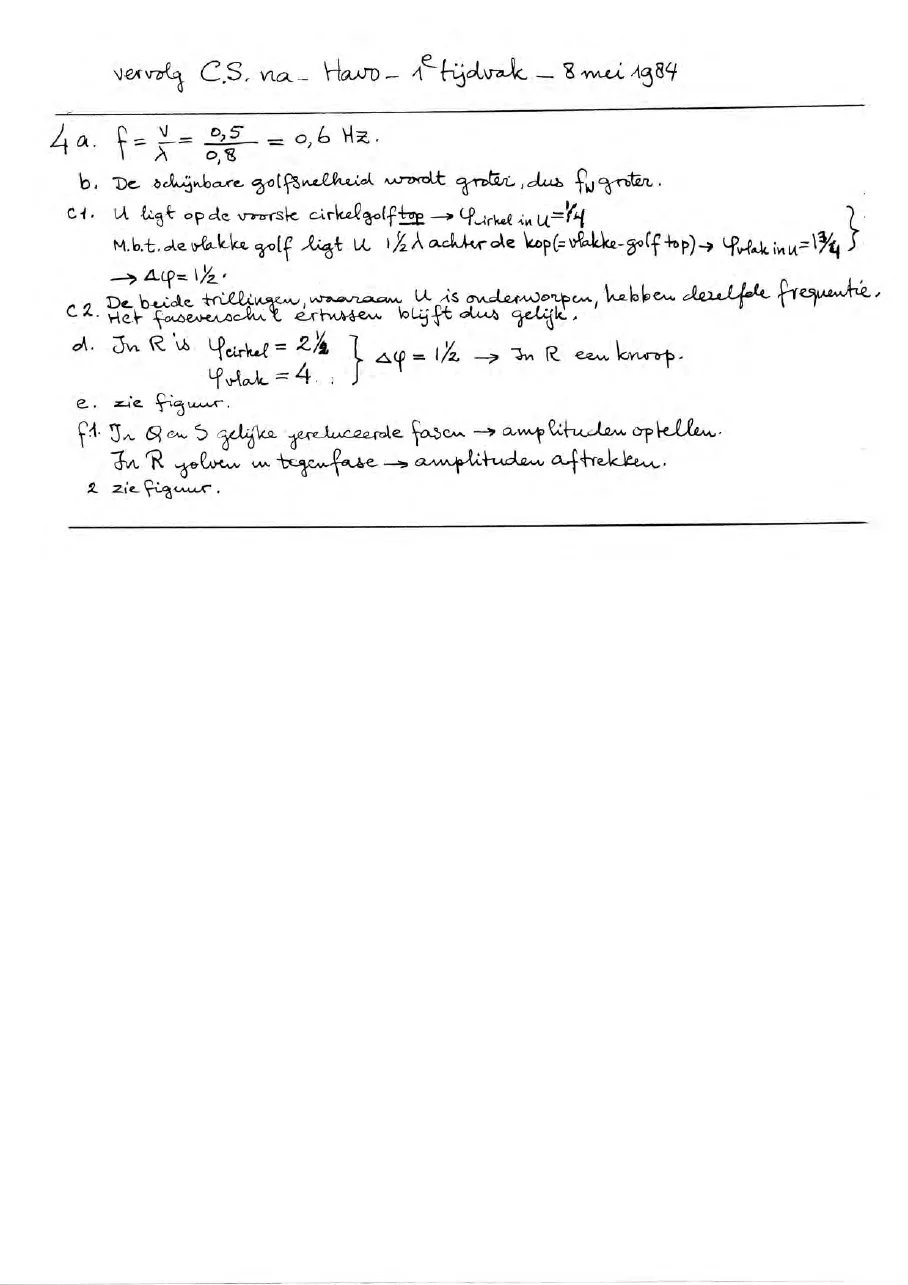 vervolg C.S. na - Havo - 1e tijdvak - 8 mei 1984
4a. f = v/λ = 0,5/0,8 = 0,6 Hz.
b. De schijnbare golfsnelheid wordt groter, dus fW groter.
c1. U ligt op de voorste cirkelgolftop → φcirkel in U = 1/4
M.b.t. de vlakke golf ligt U 1½ λ achter de kop (= vlakke-golf top) → φvlak in U = 1¾ }
→ Δφ = 1½.
c2. De beide trillingen, waaraan U is onderworpen, hebben dezelfde frequentie.
Het faseverschil ertussen blijft dus gelijk.
d. In R is φcirkel = 2½ } Δφ = 1½ → In R een knoop.
φvlak = 4
e. zie figuur.
f1. In Q en S gelijke gereduceerde fasen → amplituden optellen.
In R golven in tegenfase → amplituden aftrekken.
2 zie figuur.